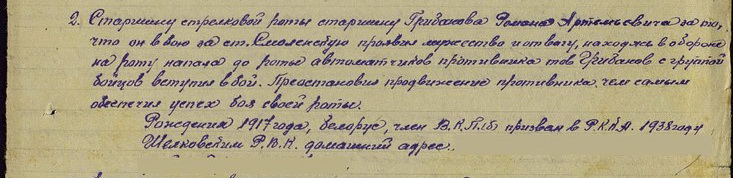 2. Старшину стрелковой роты старшину Грибакова Романа Артемьевича за то,
что он в бою за ст. Смоленскую проявил мужество и отвагу, находясь в обороне
на роту напала до роты автоматчиков противника тов Грибаков с группой
бойцов вступил в бой. Преостановил продвижение противника, чем самым
обеспечил успех боя своей роты.
Рождения 1917 года, белорус, член В.К.П.(б) призван в Р.К.К.А. 1938 году
Шелковским Р.В.К. домашний адрес: